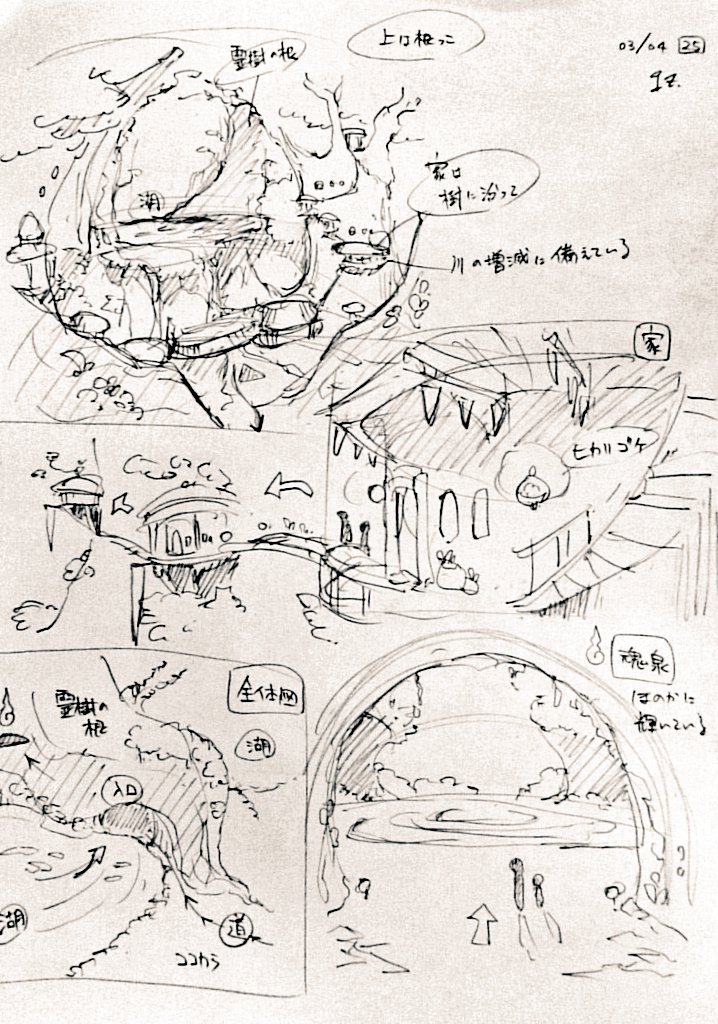 上は根っこ
03/04 25
霊樹の根
家は
樹に沿って
湖
川の増減に備えている
家
ヒカリゴケ
全体図
霊樹の
根
湖
入口
湖
道
ココから
魂泉
ほのかに
輝いている